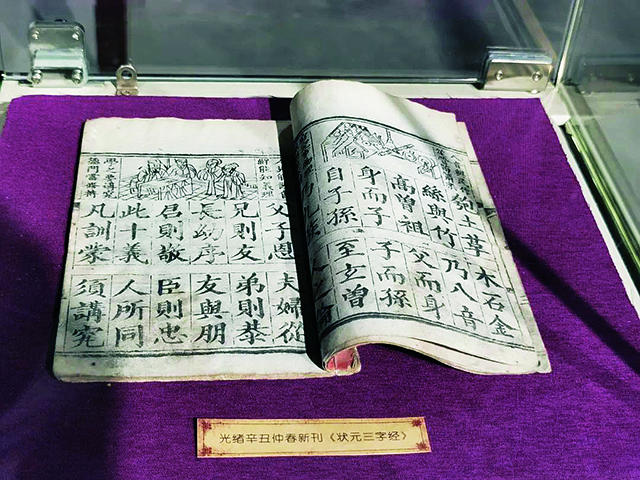 匏土革木石金
絲與竹乃八音
高曾祖父而身
身而子子而孫
自子孫至玄曾
父子恩夫婦從
兄則友弟則恭
長幼序友與朋
君則敬臣則忠
此十義人所同
凡訓蒙須講究
光绪辛丑仲春新刊《状元三字经》